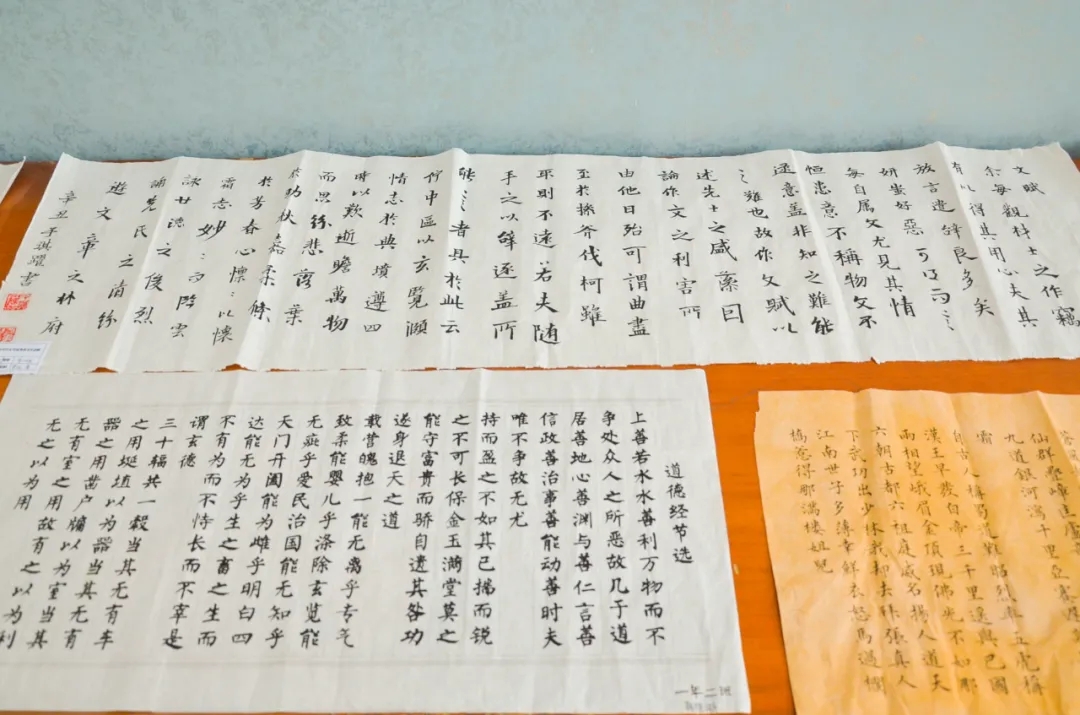 文賦
余每觀材士之作竊
有以得其用心夫其
放言遣辞良多矣
妍蚩好惡可得而言
每自属文尤見其情
恒患意不稱物文不
逮意盖非知之難能
之難也故作文賦以
述先士之盛藻因
論作文之利害所
由他日殆可謂曲盡
至於操斧伐柯雖
取則不遠若夫随
手之辞逐盖所
能言者具於此云
佇中區以玄覽頤
情志於典墳遵四
時以歎逝瞻萬物
而思紛悲落葉
於劲秋喜柔條
於芳春心懔懔以懷
霜志眇眇而臨雲
詠世德之俊烈
誦先民之清芬
遊文章之林府
辛丑年祺躍書
道德经节选
上善若水水善利万物而不
争处众人之所恶故几于道
居善地心善渊与善仁言善
信政善治事善能动善时夫
唯不争故无尤
持而盈之不如其已揣而锐
之不可长保金玉满堂莫之
能守富贵而骄自遗其咎功
遂身退天之道
载营魄抱一能无离乎专气
致柔能婴儿乎涤除玄览能
无疵乎爱民治国能无知乎
天门开阖能为雌乎明白四
达能无为乎生之畜之生而
不有为而不恃长而不宰是
谓玄德
三十辐共一毂当其无有车
之用埏埴以为器当其无有
器之用凿户牖以为室当其
无有室之用故有之以为利
无之以为用
一年二班
仙群疊嶂连廬
九道銀河灣千里亞
霜
自古人稱蜀道難昭烈年五虎橋
漢王早發白帝三千里遠與巴國
兩相望峨眉金頂現佛光不如那
六朝古都六祖庭威名揚人道天
下武功出少林我却去拜張真人
江南世子多薄幸鮮衣怒馬過欄
橋惹得那满楼姐兒